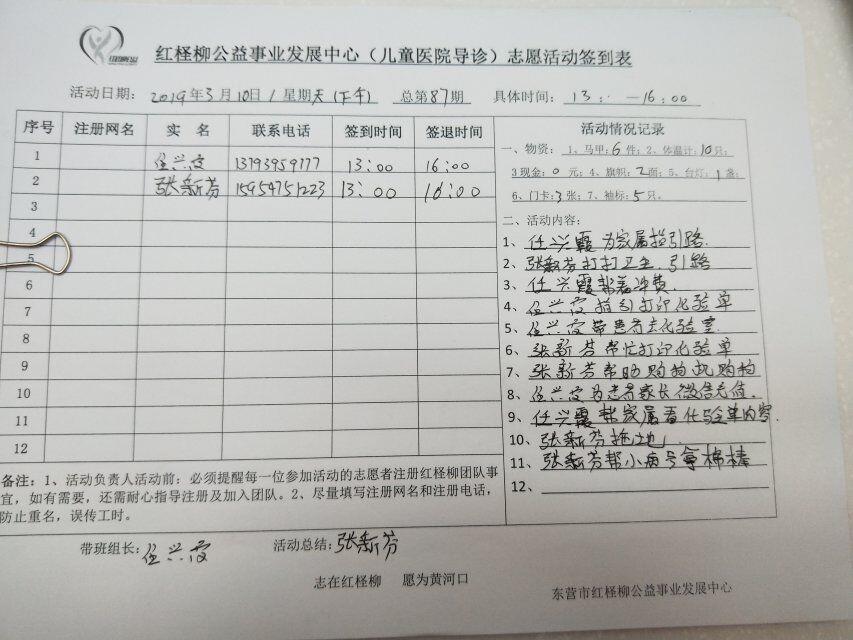 红柽柳公益事业发展中心（儿童医院导诊）志愿活动签到表
活动日期： 2019年3月10日/星期天（下午） 总第87期 具体时间： 13： —16：00
序号 注册网名 实 名 联系电话 签到时间 签退时间 活动情况记录
一、物资： 1、马甲：6件；2、体温计：10只；
3 现金：0 元；4、旗帜：2面；5、台灯：1盏；
6、门卡：3张；7、袖标：5只。
1 任兴霞 13793959177 13：00 16：00
2 张新芬 15954751223 13：00 16：00
3
4
5
6
7
8
9
10
11
12
二、活动内容：
1、任兴霞为家属指引路.
2、张新芬打扫卫生.引路
3、任兴霞帮着冲费.
4、任兴霞指引打印化验单
5、任兴霞带患者去化验室
6、张新芬帮忙打印化验单
7、张新芬帮助购物机购物
8、任兴霞为患者家长微信充值.
9、任兴霞帮家属看化验单内容.
10、张新芬拖地
11、张新芬帮小病号拿棉棒
12、
备注：1、活动负责人活动前：必须提醒每一位参加活动的志愿者注册红柽柳团队事
宜，如有需要，还需耐心指导注册及加入团队。2、尽量填写注册网名和注册电话，
防止重名，误传工时。
带班组长：任兴霞 活动总结：张新芬
志在红柽柳 愿为黄河口
东营市红柽柳公益事业发展中心